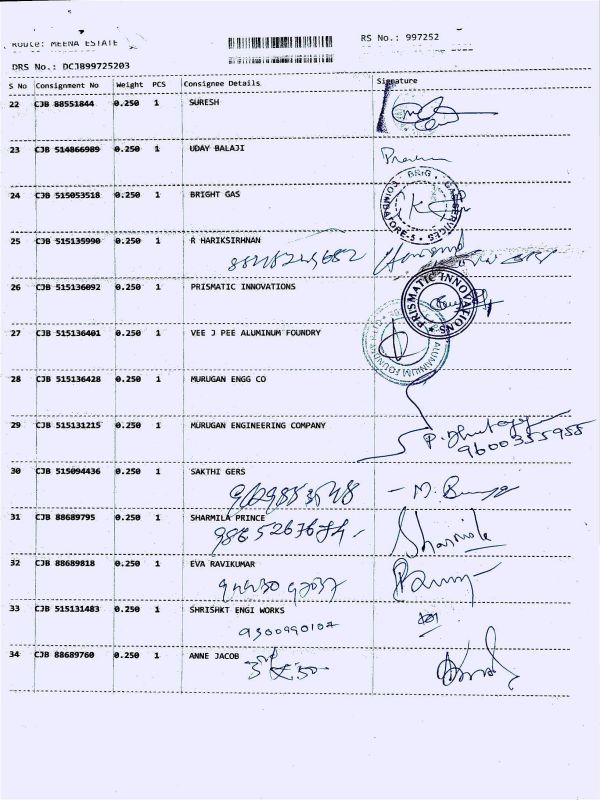 Route: MEENA ESTATE
RS No.: 997252
DRS No.: DCJB99725203
S No Consignment No Weight PCS Consignee Details Signature
22 CJB 88551844 0.250 1 SURESH
23 CJB 514866989 0.250 1 UDAY BALAJI
24 CJB 515053518 0.250 1 BRIGHT GAS
COIMBATORE-5
25 CJB 515135990 0.250 1 R HARIKSIRHNAN
26 CJB 515136092 0.250 1 PRISMATIC INNOVATIONS
PRISMATIC INNOVATIONS
27 CJB 515136401 0.250 1 VEE J PEE ALUMINUM FOUNDRY
28 CJB 515136428 0.250 1 MURUGAN ENGG CO
29 CJB 515131215 0.250 1 MURUGAN ENGINEERING COMPANY
9600355955
30 CJB 515094436 0.250 1 SAKTHI GERS
31 CJB 88689795 0.250 1 SHARMILA PRINCE
Sharmila
32 CJB 88689818 0.250 1 EVA RAVIKUMAR
33 CJB 515131483 0.250 1 SHRISHKT ENGI WORKS
34 CJB 88689760 0.250 1 ANNE JACOB